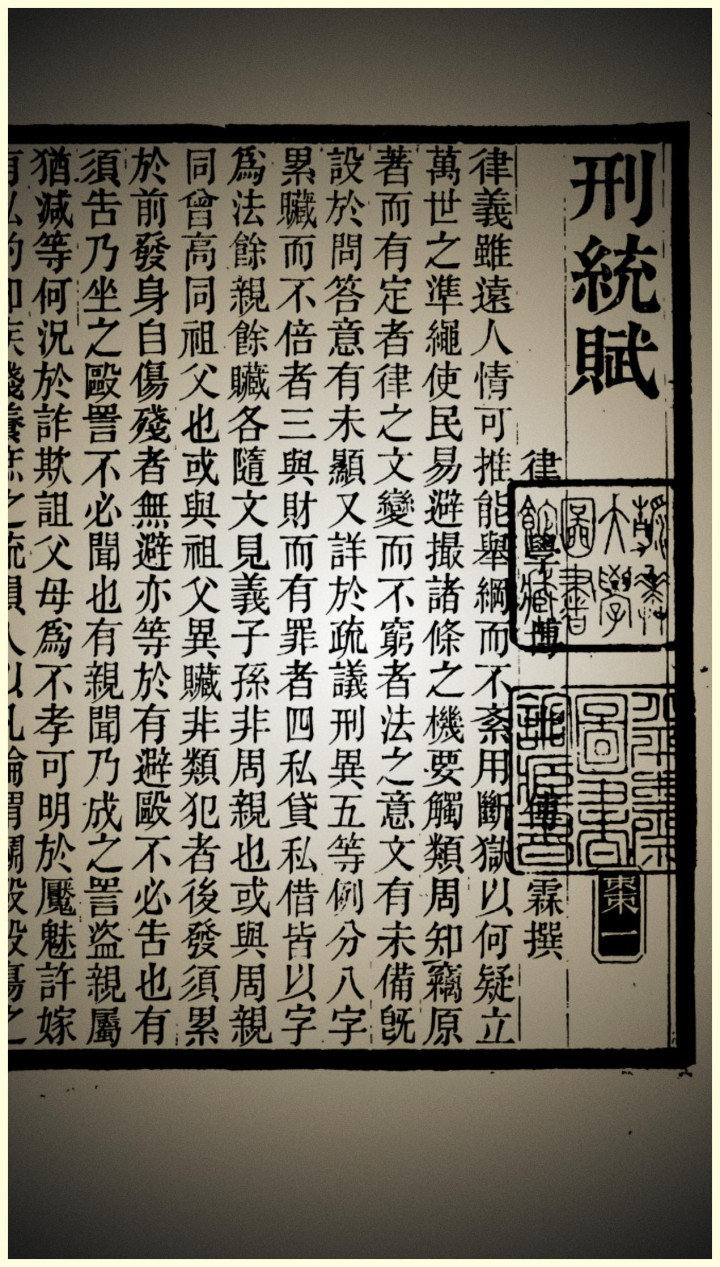 刑統賦
律學博士傅霖撰
律義雖遠人情可推能舉綱而不紊用斷獄以何疑立
萬世之準繩使民易避撮諸條之機要觸類周知竊原
著而有定者律之文變而不窮者法之意文有未備旣
設於問答意有未顯又詳於疏議刑異五等例分八字
累贓而不倍者三與財而有罪者四私貸私借皆以字
爲法餘親餘贓各隨文見義子孫非周親也或與周親
同曾高同祖父也或與祖父異贓非類犯者後發須累
於前發身自傷殘者無避亦等於有避毆不必告也有
須告乃坐之毆詈不必聞也有親聞乃成之詈盜親屬
猶減等何況於詐欺詛父母爲不孝可明於魘魅許嫁
棗一